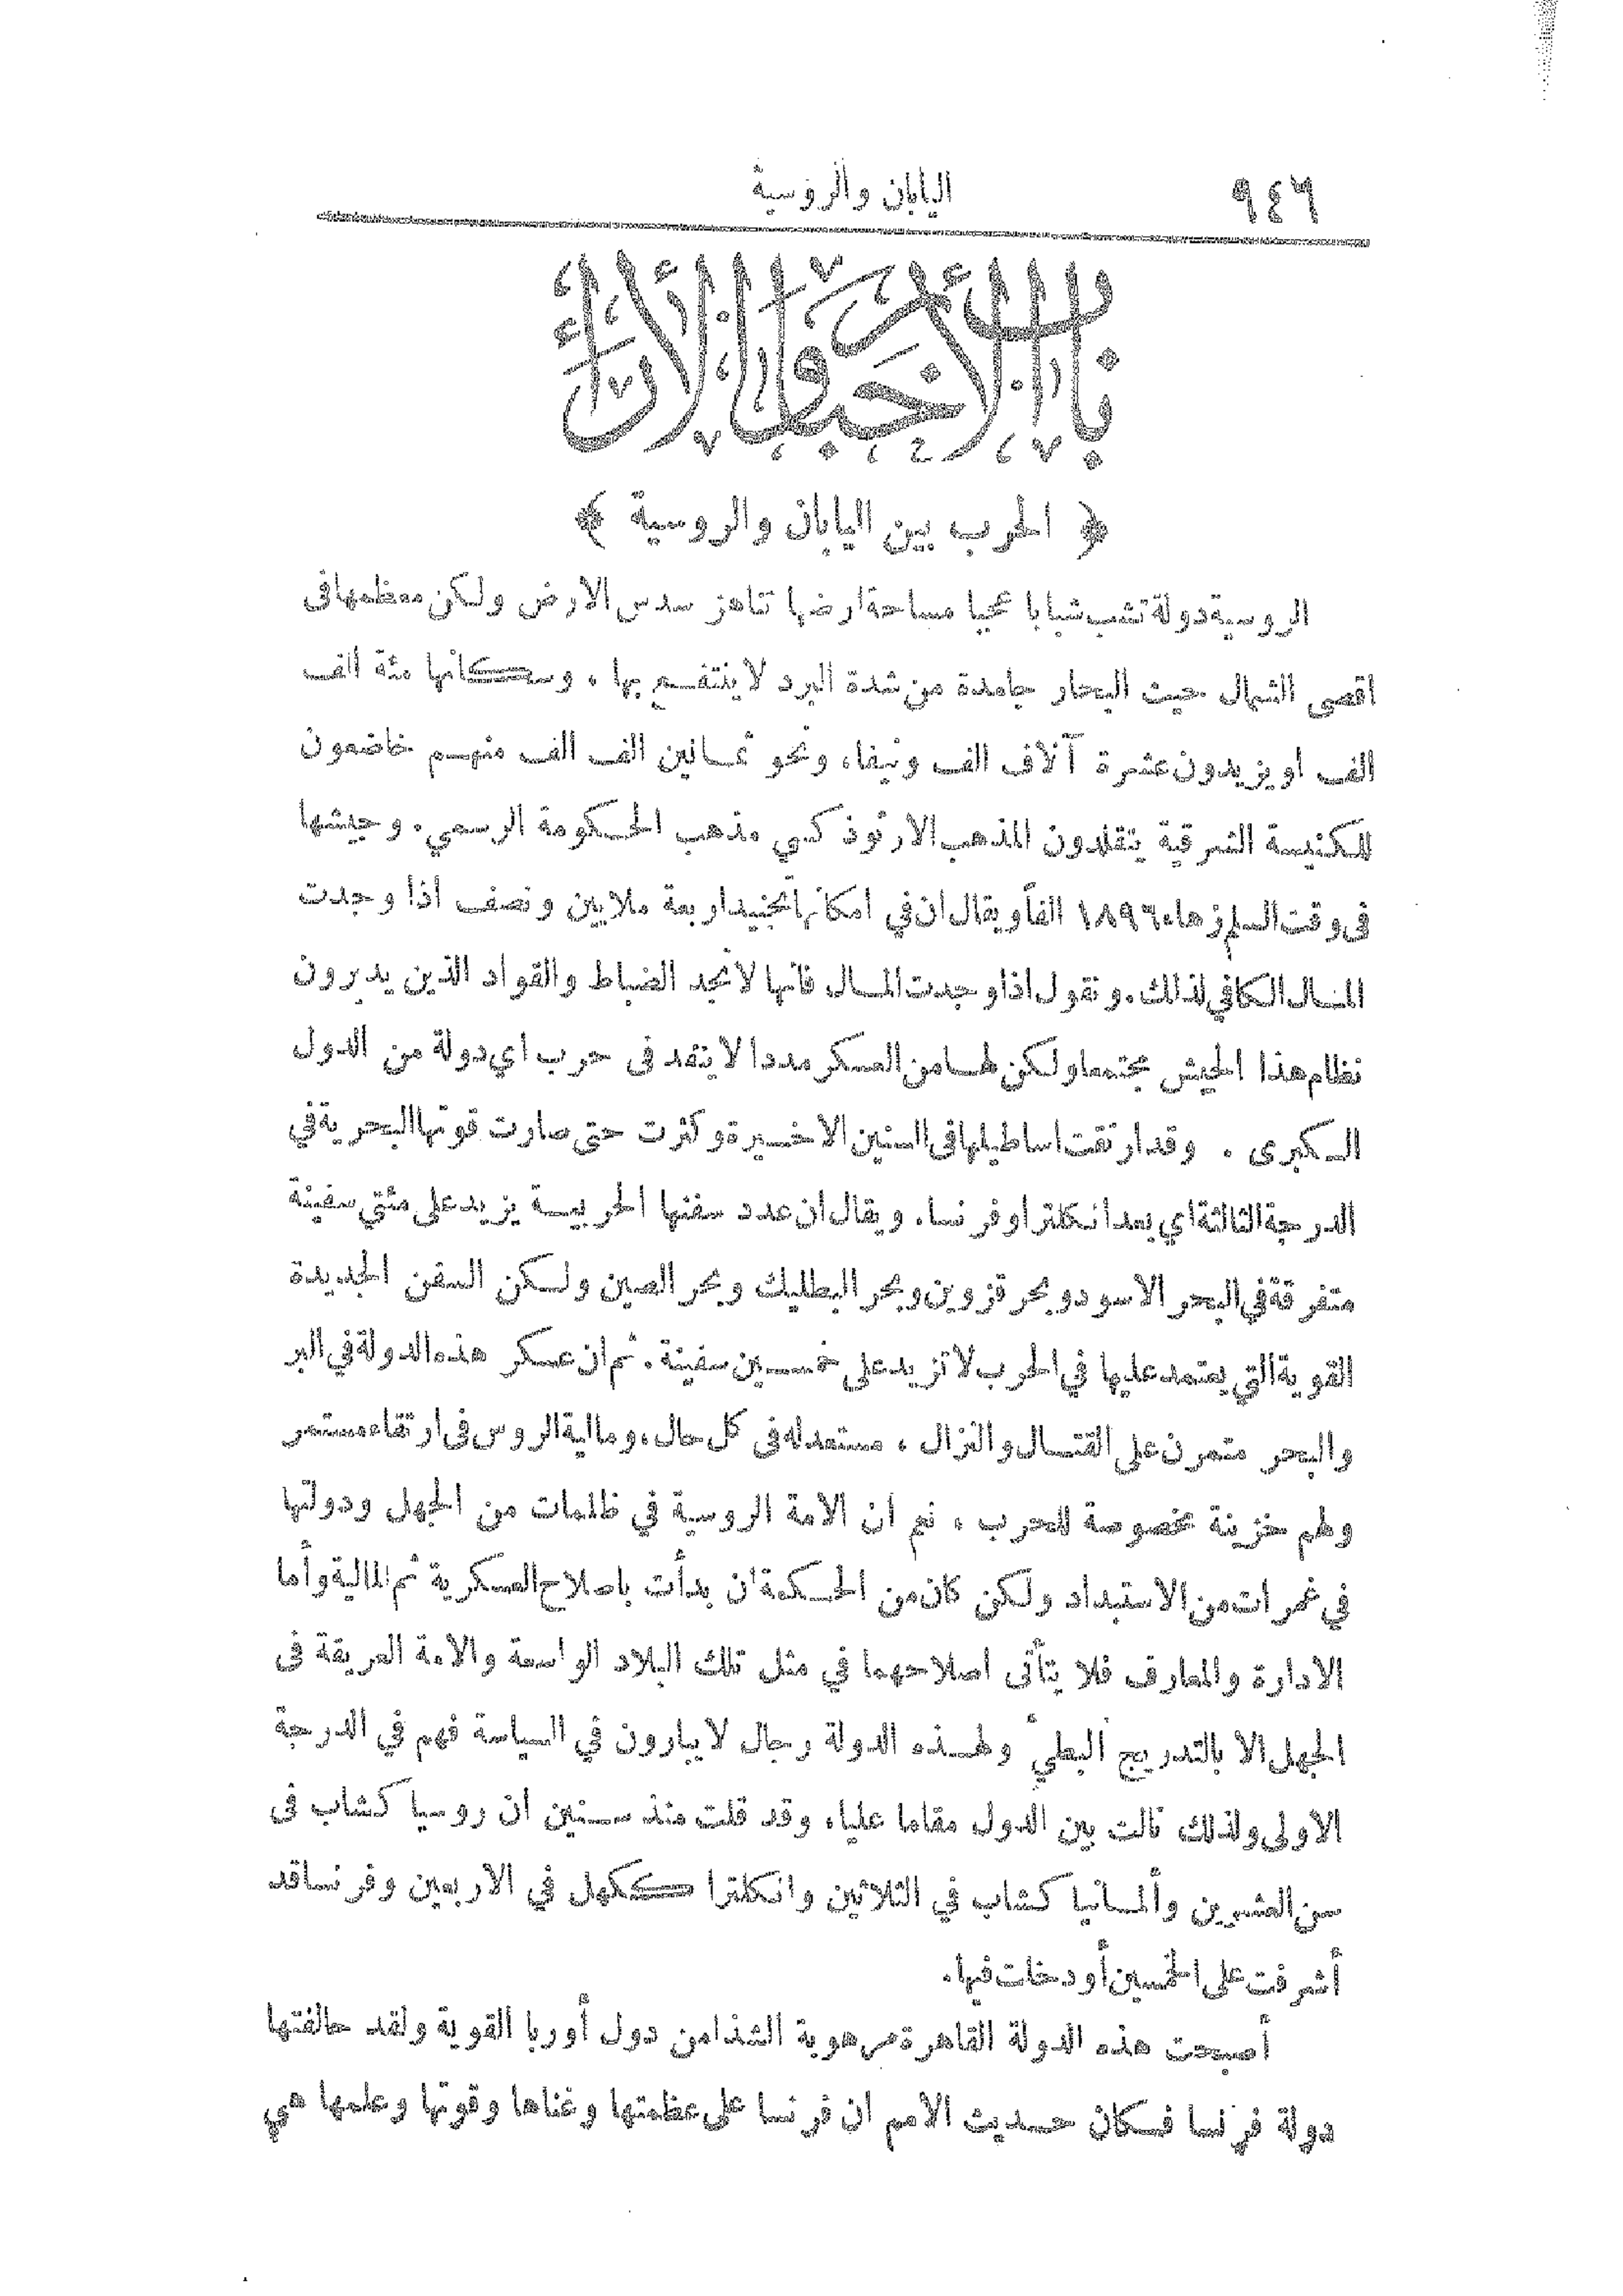 ٩٤٦
اليابان والروسية
باب الاخبار والآراء
﴿ الحرب بين اليابان والروسية ﴾
الروسية دولة تشب شبابا عجيبا مساحة ارضها تناهز سدس الارض ولكن معظمها فى
اقصى الشمال حيث البحار جامدة من شدة البرد لا ينتفع بها ، وسكانها مئة الف
الف او يزيدون عشرة آلاف الف ونيفا، ونحو ثمانين الف الف منهم خاضعون
للكنيسة الشرقية يتقلدون المذهب الارثوذكي مذهب الحكومة الرسمي. وجيشها
فى وقت السلم زهاء ١٨٩٦ الفاً ويقال ان في امكانها تجنيد اربعة ملايين ونصف اذا وجدت
المال الكافي لذلك. ونقول اذا وجدت المال فانها لا تجد الضباط والقواد الذين يديرون
نظام هذا الجيش مجتمعا ولكن لها من العسكر مددا لا ينفد فى حرب اي دولة من الدول
الكبرى . وقد ارتقت اساطيلها فى السنين الاخيرة وكثرت حتى صارت قوتها البحرية في
الدرجة الثالثة اي بعد انكلترا وفرنسا. ويقال ان عدد سفنها الحربية يزيد على مئتي سفينة
متفرقة في البحر الاسود وبحر قزوين وبحر البطليك وبحر الصين ولكن السفن الجديدة
القوية التي يعتمد عليها في الحرب لا تزيد على خمسين سفينة. ثم ان عسكر هذه الدولة في البر
والبحر متمرن على القتال والنزال ، مستعد له فى كل حال، ومالية الروس فى ارتقاء مستمر
ولهم خزينة مخصوصة للحرب ، نعم ان الامة الروسية في ظلمات من الجهل ودولتها
في غمرات من الاستبداد ولكن كان من الحكمة أن بدأت باصلاح العسكرية ثم المالية وأما
الادارة والمعارف فلا يتأتى اصلاحهما في مثل تلك البلاد الواسعة والامة العريقة فى
الجهل الا بالتدريج البطيء ولهذه الدولة رجال لا يبارون في السياسة فهم في الدرجة
الاولى ولذلك نالت بين الدول مقاما عليا، وقد قلت منذ سنين ان روسيا كشاب فى
سن العشرين وألمانيا كشاب في الثلاثين وانكلترا ككهل في الاربعين وفرنسا قد
أشرفت على الخمسين أو دخلت فيها.
أصبحت هذه الدولة القاهرة مرهوبة الشذا من دول أوربا القوية ولقد حالفتها
دولة فرنسا فكان حديث الامم ان فرنسا على عظمتها وغناها وقوتها وعلمها هي